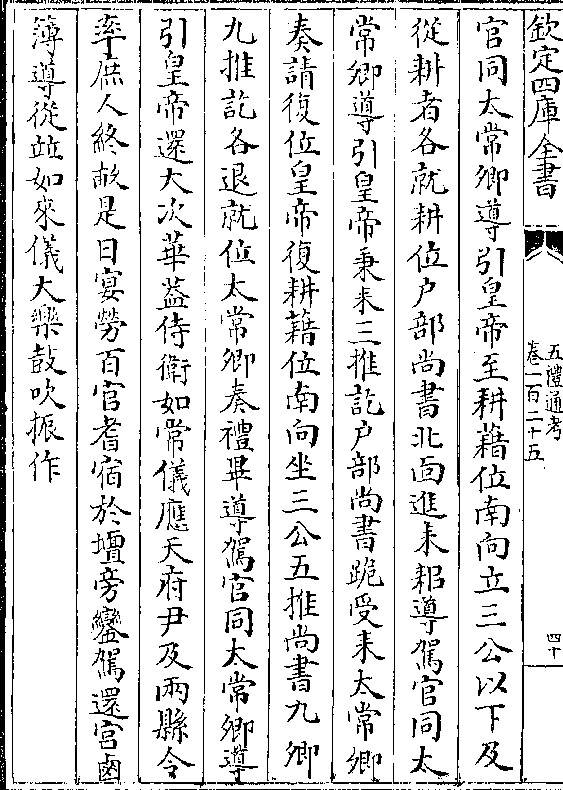 欽定四庫全書
五禮通考
卷一百二十五
四十
官同太常卿導引皇帝至耕藉位南向立三公以下及
從耕者各就耕位户部尚書北面進耒耜導駕官同太
常卿導引皇帝秉耒三推訖户部尚書跪受耒太常卿
奏請復位皇帝復耕藉位南向坐三公五推尚書九卿
九推訖各退就位太常卿奏禮畢導駕官同太常卿導
引皇帝還大次華葢侍衛如常儀應天府尹及兩縣令
率庶人終畝是日宴勞百官耆宿於壇旁鑾駕還宮鹵
簿導從竝如來儀大樂鼓吹振作